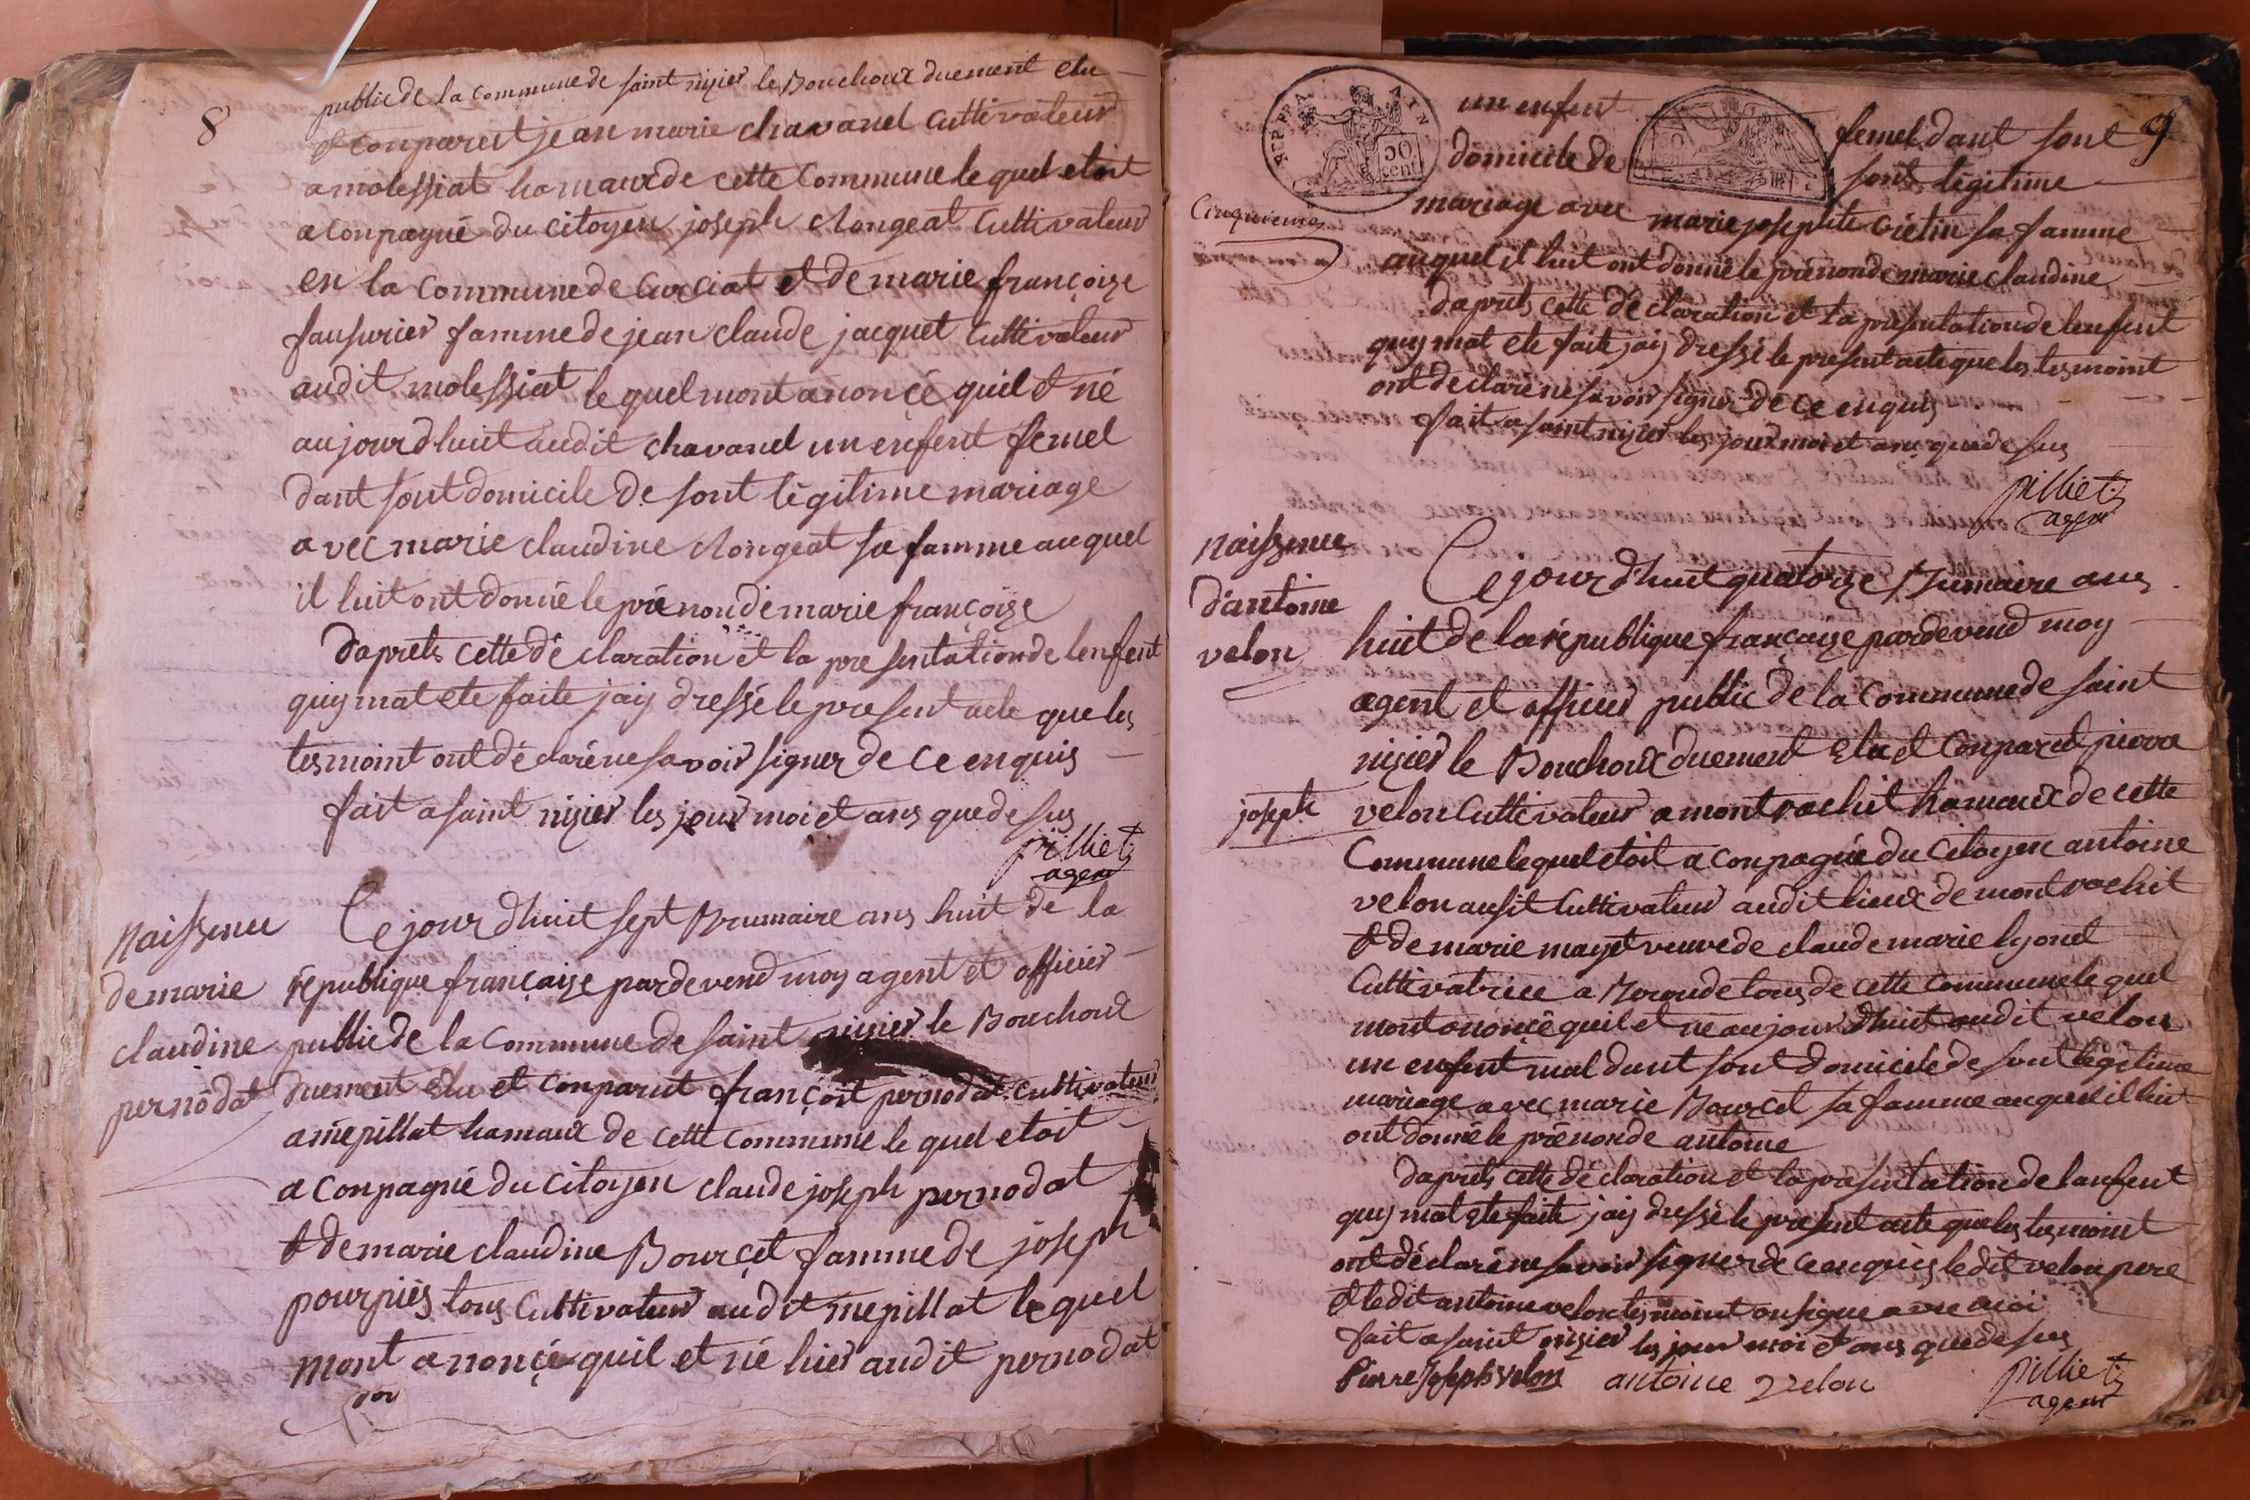 8
public de la commune de saint nizier le Bouchoux duement elu
et conparut jean marie chavanel cultivateur
a molessiat hamaux de cette commune le quel etoit
a conpagné du citoyen joseph clongeat cultivateur
en la commune de Curciat et de marie françoize
fausurier famme de jean claude jacquet cultivateur
audit molessiat le quel mont anoncé quil et né
aujourdhuit audit chavanel un enfent femel
dant sont domicile de sont légitime mariage
avec marie claudine clongeat sa famme auquel
il luit ont donné le prénon de marie françoize
daprets cette déclaration et la presentation de lenfent
quy mat ete faite jaij dressé le present acte que les
tesmoint ont déclaré ne savoir signer de ce enquis
fait a saint nizier les jour moi et ans que desus
pilliet
agent
Naissence
de marie
claudine
pernodat
Ce jourdhuit sept Brumaire ans huit de la
république françaize pardevend moy agent et officier
public de la commune de saint nizier le Bouchoux
duement elu et conparut françoit pernodat cultivateur
a mépillat hamaux de cette commune le quel etoit
a conpagné du citoyen claude joseph pernodat
et de marie claudine Bourcet famme de joseph
pourpiés tous cultivateur audit mepillat le quel
mont anoncé quil et né hier audit pernodat
9
REP. FRA.
50
cent
un enfent femel dant sont
domicile de sont légitime
Cinquieme
mariage avec marie josephte crétin sa famme
auquel il luit ont donné le prénon de marie claudine
daprets cette déclaration et la presentation de lenfent
quy mat ete faite jaij dressé le present acte que les tesmoint
ont déclaré ne savoir signer de ce enquis
fait a saint nizier les jour moi et ans que desus
pilliet
agent
Naissence
d'antoine
velon
Ce jourdhuit quatorze Brumaire ans
huit de la république françaize pardevend moy
agent et officier public de la commune de saint
nizier le Bouchoux duement elu et conparut pierre
joseph
velon cultivateur a montrachit hamaux de cette
commune le quel etoit a conpagné du citoyen antoine
velon ausit cultivateur audit lieux de montrachit
et de marie mayet veuve de claude marie lyonel
cultivatrice a tous de cette commune le quel
mont anoncé quil et né aujourdhuit audit velon
un enfent mal dant sont domicile de sont légitime
mariage avec marie Bourcet sa famme auquel il luit
ont donné le prénon de antoine
daprets cette déclaration et la presentation de lanfent
quy mat ete faite jaij dressé le present acte que les tesmoint
ont déclaré ne savoir signer de ce enquis ledit velon pere
et ledit antoine velon tesmoint on signe avec moi
fait a saint nizier les jour moi et ans que desus
Pierre Joseph velon antoine velon
pilliet
agent